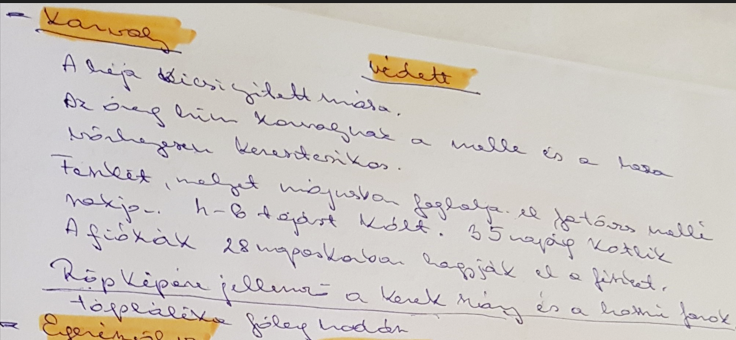 - Karvaly
védett
A héja kicsinyített mása.
Az öreg hím karvalynak a melle és a hasa
vörhenyesen keresztcsíkos.
Fészkét, melyet májusban foglal el törzs mellé
rakja. 4-6 tojást költ. 35 napig kotlik
A fiókák 28 napos korban hagyják el a fészket.
Röpképére jellemző a kerek szárny és a hosszú farok
tápláléka főleg madár
-